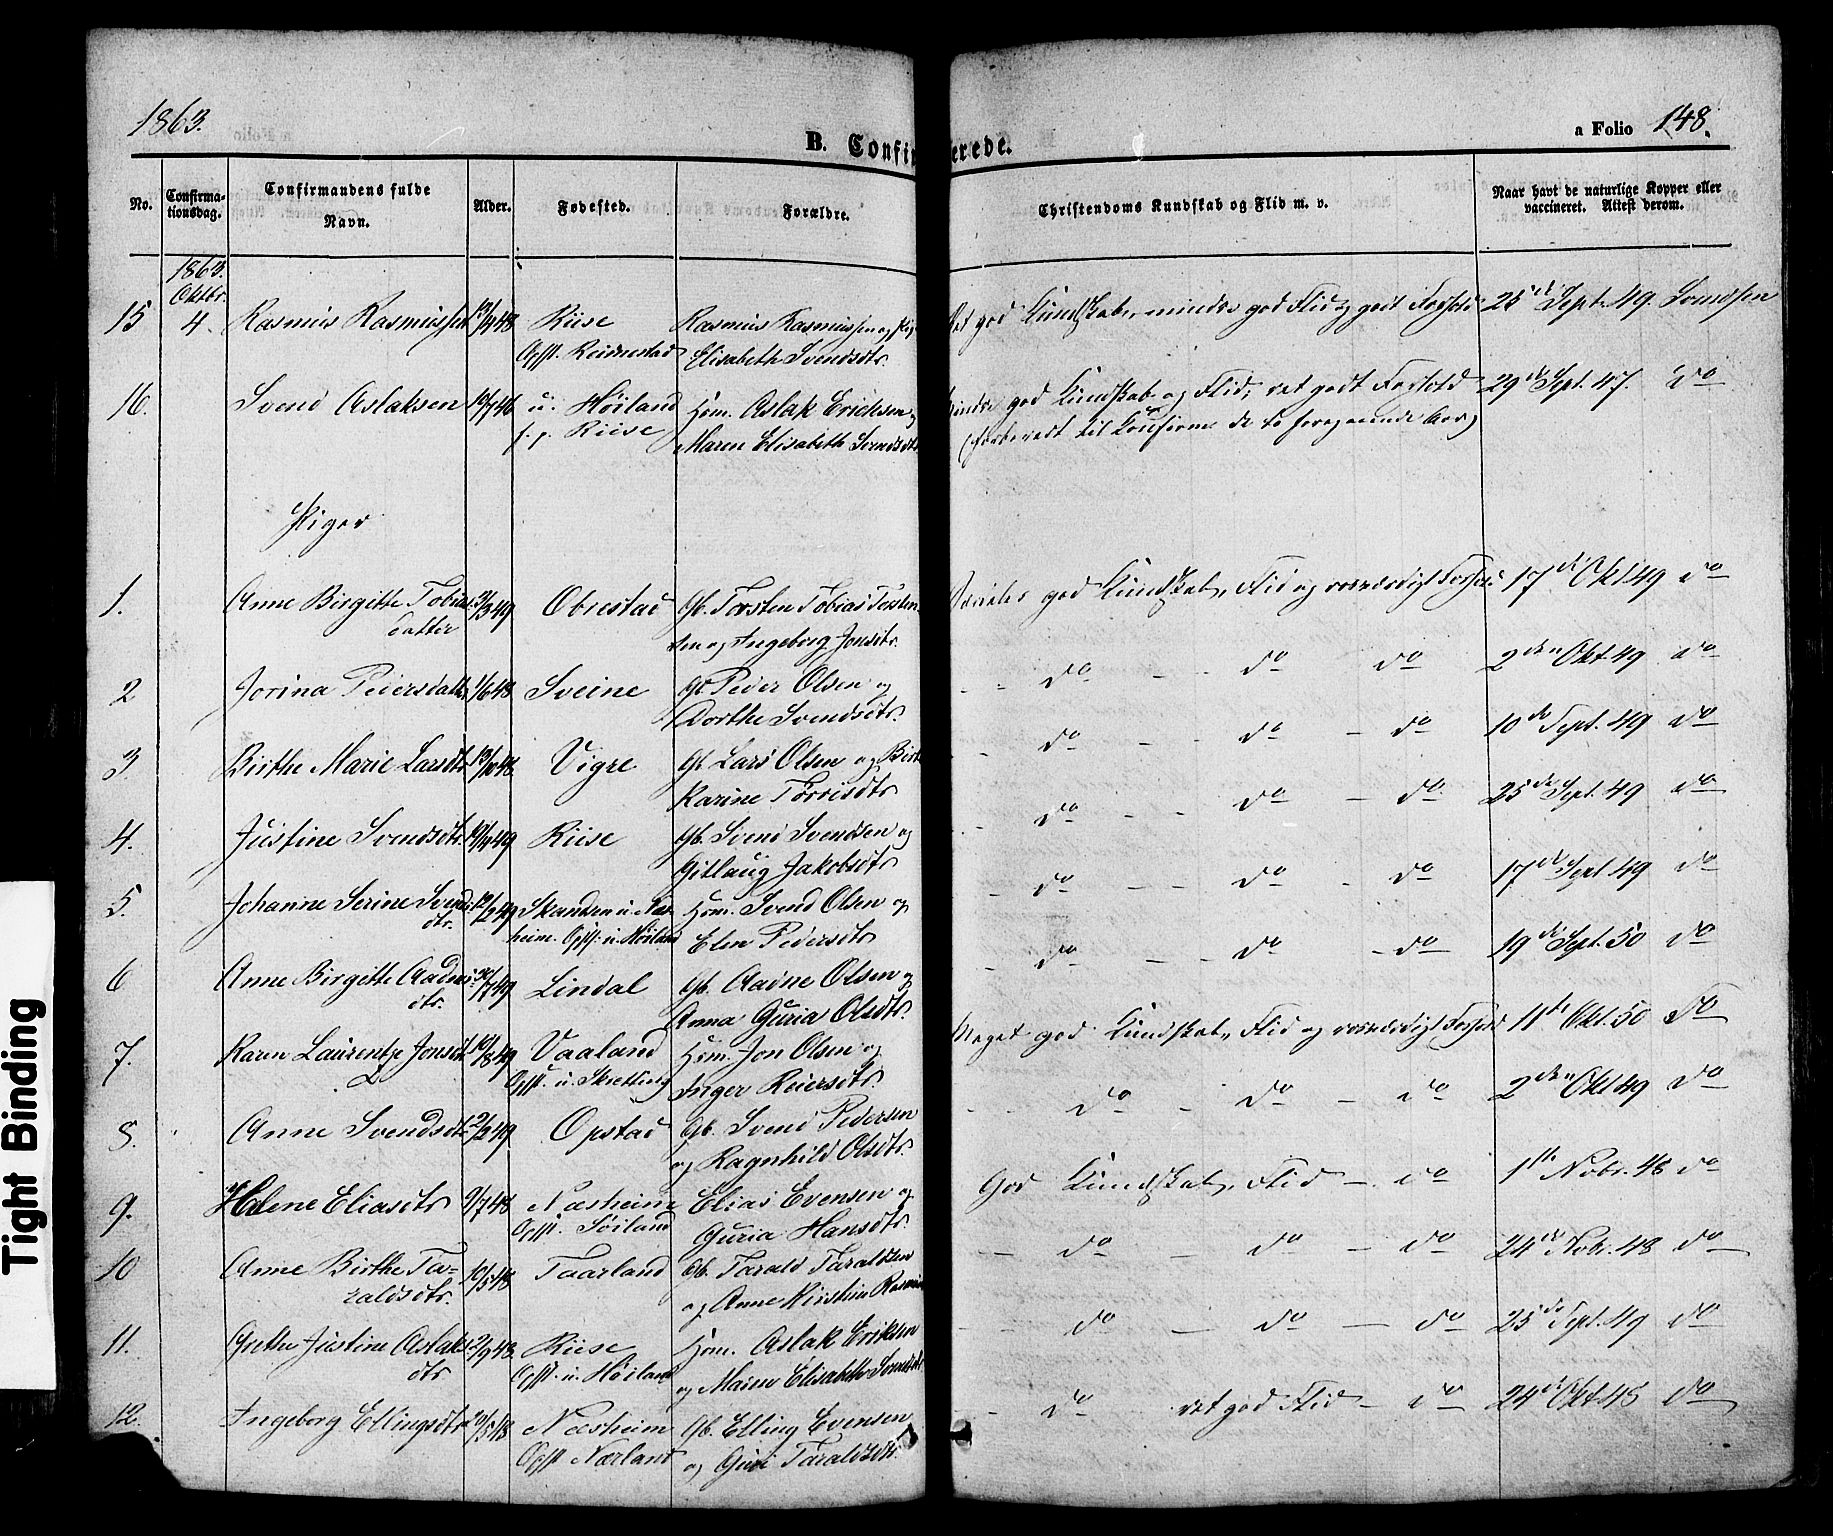 1863.
B. Confirmerede.
a Folio 148.
No.
Confirma-
tionsdag.
Confirmandens fulde
Navn.
Alder.
Fødested.
Forældre.
Christendoms Kundskab og Flid m. v.
Naar havt de naturlige Kopper eller
vaccineret. Attest derom.
1863.
Oktbr.
15 4. Rasmus Rasmussen Riise Rasmus Rasmussen og god Kundskab, mindre god Flid, godt Forhold 25de Sept. 49. Svendsen
Opf. Reidnestad Elisabeth Svendsdtr.
16. Svend Aslaksen u. Høiland Hsm. Aslak Ericksen og Mindre god Kundskab og Flid, ret godt Forhold 29de Sept. 47. do
Riise Maren Elisabeth Svendsdtr
(forberedt til Confirm. de to foregaaende Aar)
Piger
1. Anne Birgitte Tobias 49 Obrestad Gb. Torsten Tobias Torsten god Kundskab, Flid og roesværdigt Forhold 17de Okt 49 do
datter sen og Ingeborg Jonsdtr.
2 Jorina Pedersdatter 1/6 48 Sveine Gb Peder Olsen og do do do 2den Okt 49 do
Dorthe Svendsdtr.
3. Birthe Marie Larsdtr 13/10 48. Vigre Gb. Lars Olsen og Birthe do do do 10de Sept. 49 do
Karine Tørrisdtr
4. Justine Svendsdtr. 49 Riise Gb. Svend Svendsen og do do do 25de Sept. 49 do
Gitlaug Jakobsdtr
5. Johanne Serine Svends 12/2 49 Skandsen u. Næs- Hsm. Svend Olsen og do do do 17de Sept 49 do
dtr. heim. Opf. u. Høiland Elen Pedersdtr
6 Anne Birgitte Aadnes 30/7 49 Lindal Gb. Aadne Olsen og do do do 19de Sept. 50 do
dtr. Anna Guria Olsdtr.
7. Karen Laurentze Jonsdtr 10/8 49 Vaaland Hsm. Jon Olsen og Meget god Kundskab, Flid og roesværdigt Forhold 11te Okt. 50 do
Opf. u. Skretting Inger Reiersdtr.
8. Anne Svendsdtr 2/2 49 Opstad Gb. Svend Pedersen do do do 2den Okt 49 do
og Ragnhild Olsdtr.
9. Helene Eliasdtr 9/7 48 Næsheim Elias Evensen og God Kundskab, Flid do 1ste Nobr. 48 do
Opf. Søiland Guria Hansdtr.
10 Anne Birthe Ta- 10/5 48 Taarland Gb. Tarald Taraldsen do do do 24de Nobr. 48 do
raldsdtr. og Anne Kirstine Rasmus
11. Grethe Justine Aslaks 2/9 48. Riise Hsm. Aslak Eriksen do do do 25de Sept. 49 do
dtr Opf. u. Høiland og Maren Elisabeth Svendsdtr
12. Ingeborg Ellingsdtr 48 Næsheim Gb. Elling Evensen do ret god Flid do 24de Okt. 48 do
Opf Nærland og Guri Taraldsdtr.
Tight Binding